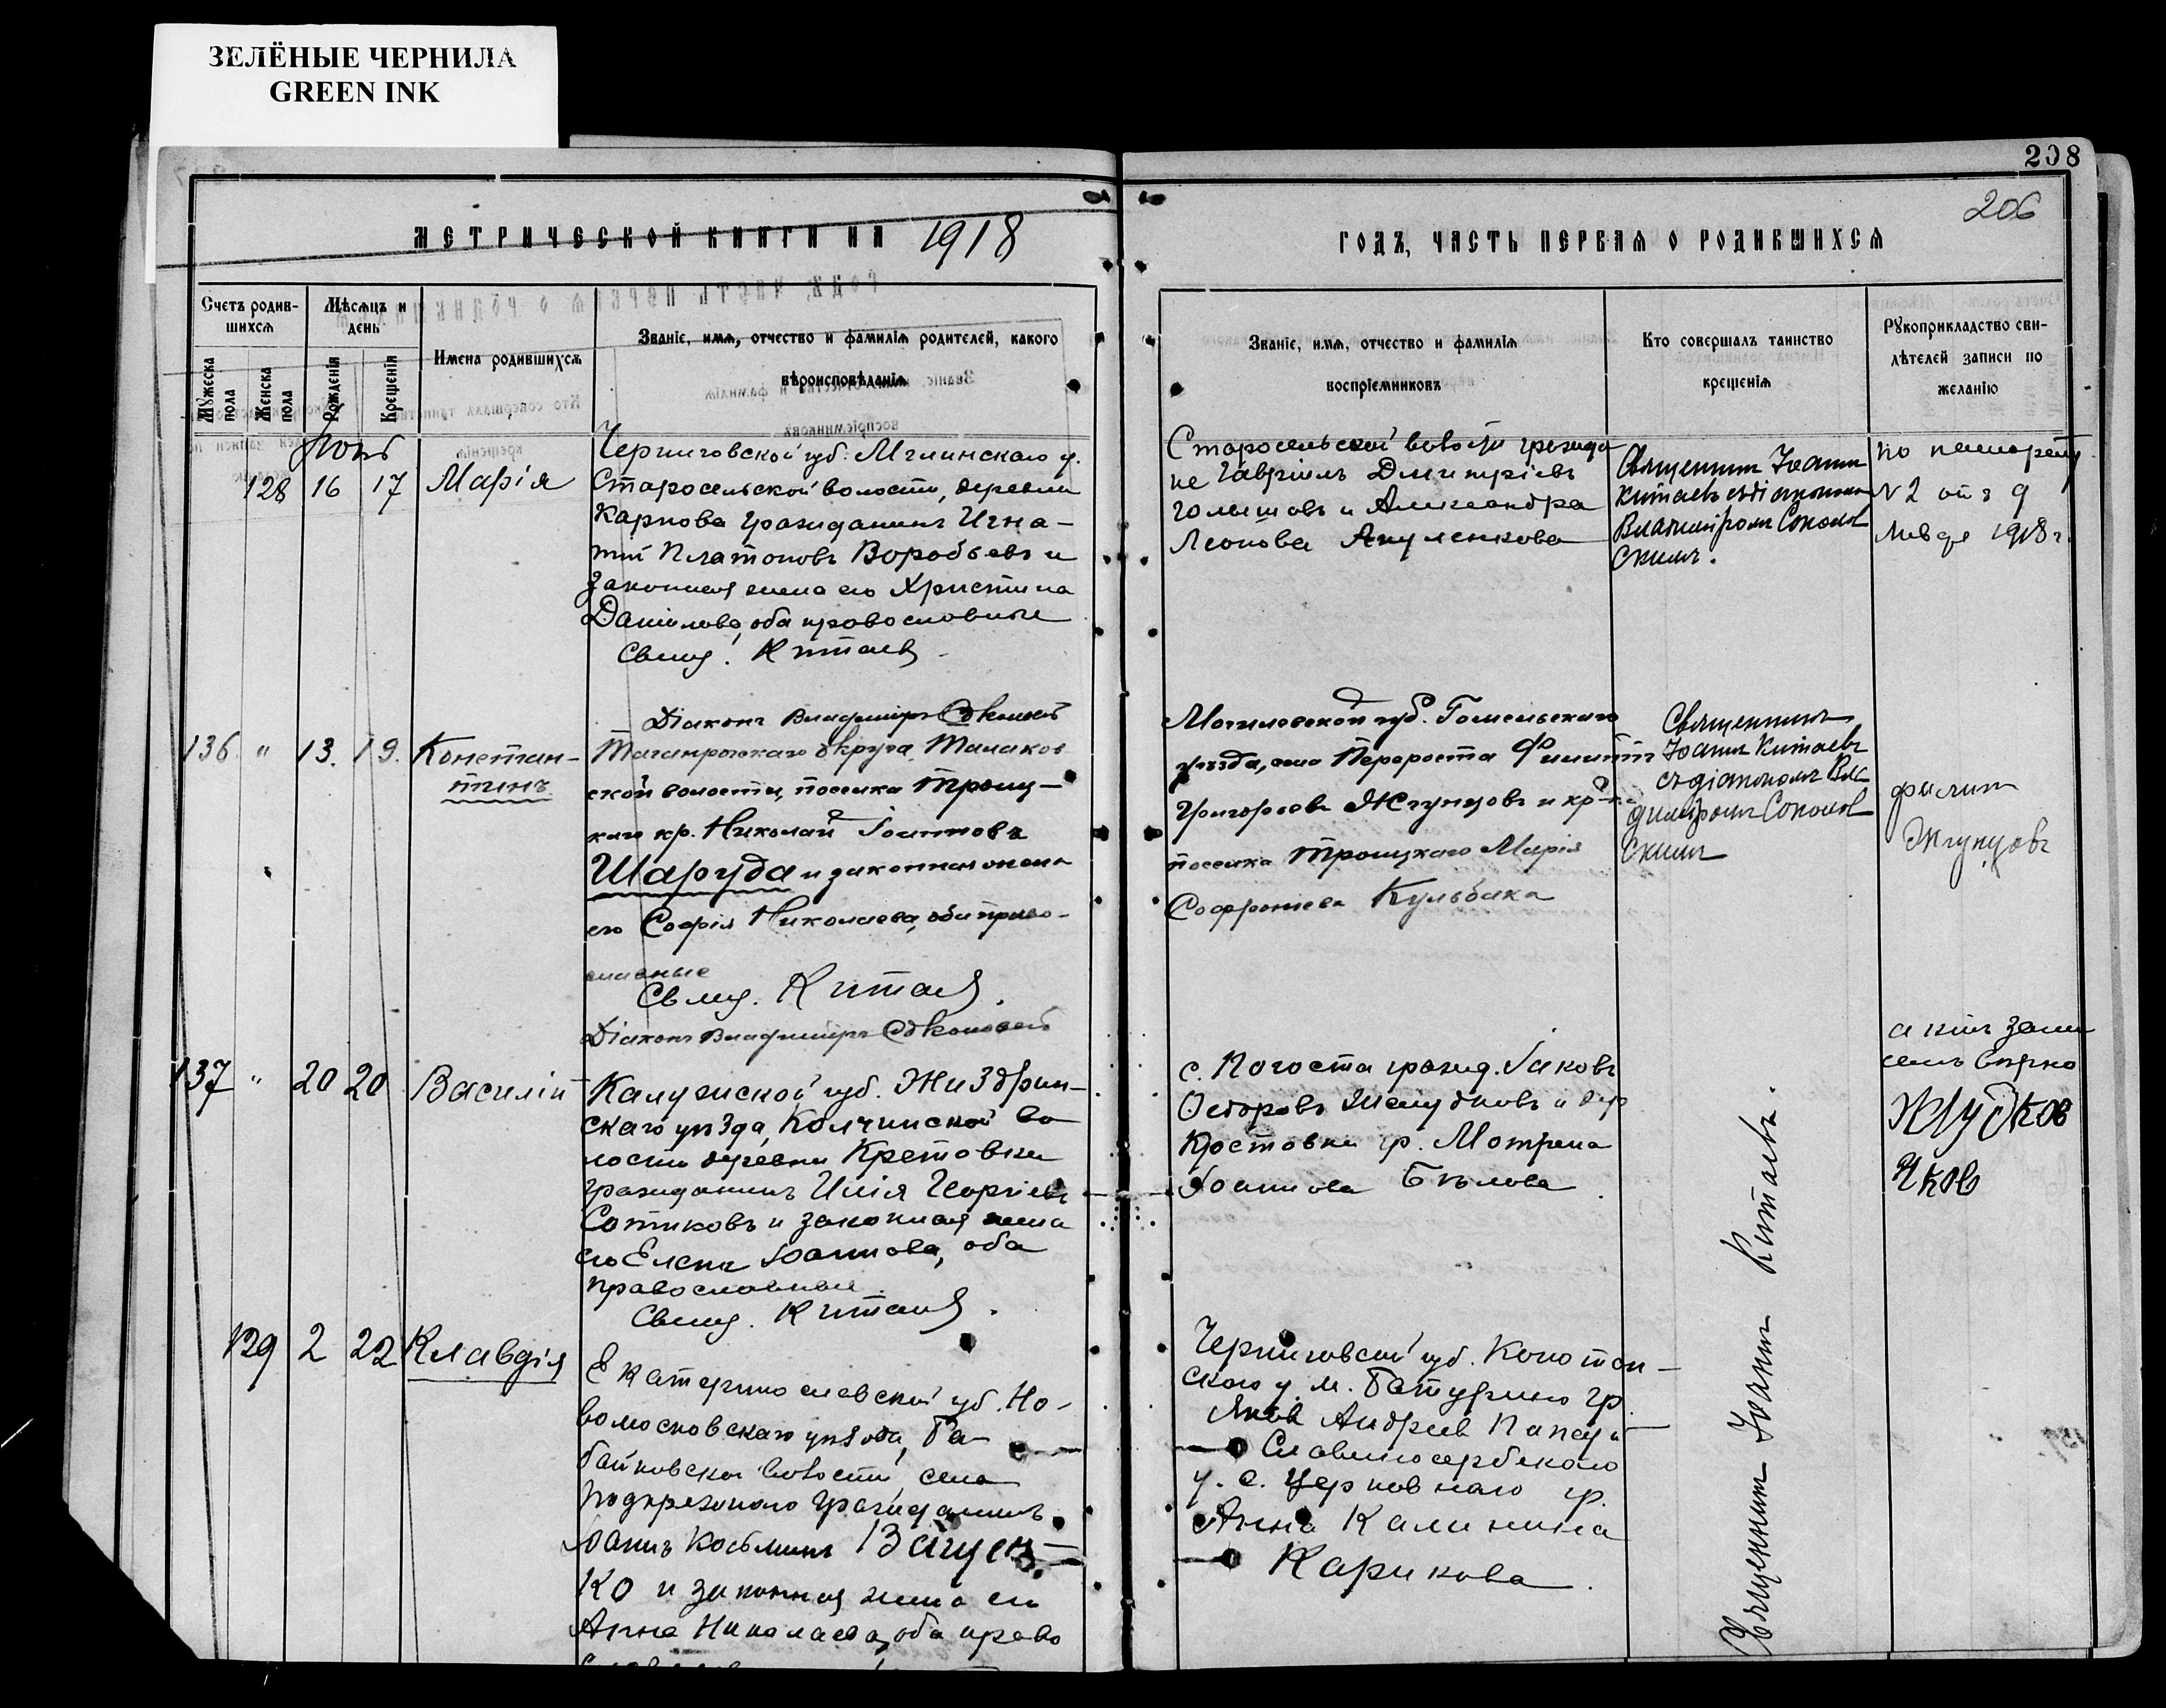 ЗЕЛЁНЫЕ ЧЕРНИЛА
GREEN INK
208
206
МЕТРИЧЕСКОЙ КНИГИ НА 1918
ГОДЪ, ЧАСТЬ ПЕРВАЯ О РОДИВШИХСЯ
Счетъ родив-
шихся
Мужеска
пола
Женска
пола
Мѣсяцъ и
день
Рожденія
Крещенія
Имена родившихся
Званіе, имя, отчество и фамилія родителей, какого
вѣроисповѣданія
Званіе, имя, отчество и фамилія
воспріемниковъ
Кто совершалъ таинство
крещенія
Рукоприкладство сви-
дѣтелей записи по
желанію
128 16 17 Марія
Черниговской губ. Мглинскаго у.
Старосельской волости, деревни
Карпова гражданинъ Игна-
тій Платоновъ Воробьевъ и
законная жена его Христина
Данілова, оба православные
Свящ. І. Китаев
Діаконъ Владиміръ
Старосельской волости гражда
не Гавріилъ Дмитріевъ
и Александра
Леонова Акуленкова
Священникъ Іоаннъ
Китаевъ съ діакономъ
Владиміромъ Соколов
скимъ.
по паспорту
№ 2 отъ 9
1918 г.
136 " 13. 19. Констан-
тинъ
Таганрогскаго округа,
ской волости, поселка Троиц-
каго кр. Николай Іоанновъ
Шаруда и законная жена
его Софія Николаева, оба право-
славные
Свящ. І. Китаев.
Діаконъ Владиміръ
Могилевской губ. Гомельскаго
уѣзда, села Перероста Филиппъ
Григорьевъ Жгунцовъ и кр-ка
поселка Троицкаго Марія
Софроніева Кульбака
Священникъ
Іоаннъ Китаевъ
съ діакономъ Вла
диміромъ Соколов
скимъ
Жгунцовъ
137 " 20 20 Василій
Калужской губ. Жиздрин-
скаго уѣзда, Колчинской во
лости деревни Кретовки
гражданинъ Илія Георгіевъ
Сотиковъ и законная жена
его Елена Іоаннова, оба
православные.
Свящ. І. Китаев.
с. Погоста гражд. Іаковъ
и дер
гр. Мотрена
Іоаннова Бѣлова.
129 2 22 Клавдія
Екатеринославской губ. Но-
вомосковскаго уѣзда, Ба-
байковской волости села
гражданинъ
Іоаннъ Косьминъ
ко и законная жена его
Анна Николаева, оба право
Черниговской губ. Конотоп-
скаго у. м. Батурино гр.
Яков Андреев
Славяносербскаго
у. с. Церковнаго гр.
Анна Калинина
Карикова.
Священникъ Іоаннъ Китаевъ.